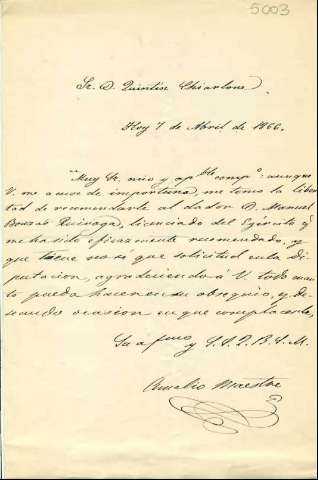 5003
Sr. D. Quintin Chiarlone.
Hoy 7 de Abril de 1866.
"Muy Sr. mio y apble. compº: aunque
V. me acuse de importuno, me tomo la liber-
tad de recomendarle al dador D. Manuel
Quiroga, licenciado del Ejército q.
me ha sido eficazmente recomendado, y
que tiene no se que solicitud en la Di-
putacion, agradeciendo á V. todo cuan-
to pueda hacer en su obsequio, y de-
seando ocasion en que complacerle,
Su afmo y S. S. Q. B. S. M.
Amalio Maestre